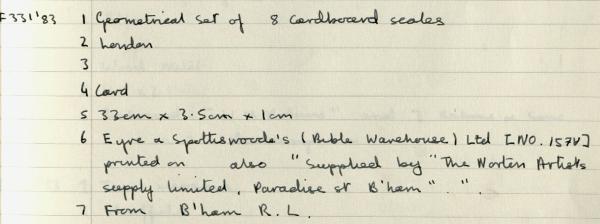 F331'83 1 Geometrical set of 8 cardboard scales
2 London
3
4 Card
5 33cm x 3.5cm x 1cm
6 Eyre & Spottiswoode's (Bible Warehouse) Ltd [NO. 157V]
printed on also "Supplied by "The Norten Artists
supply limited, Paradise st B'ham" . ".
7 From B'ham R.L.